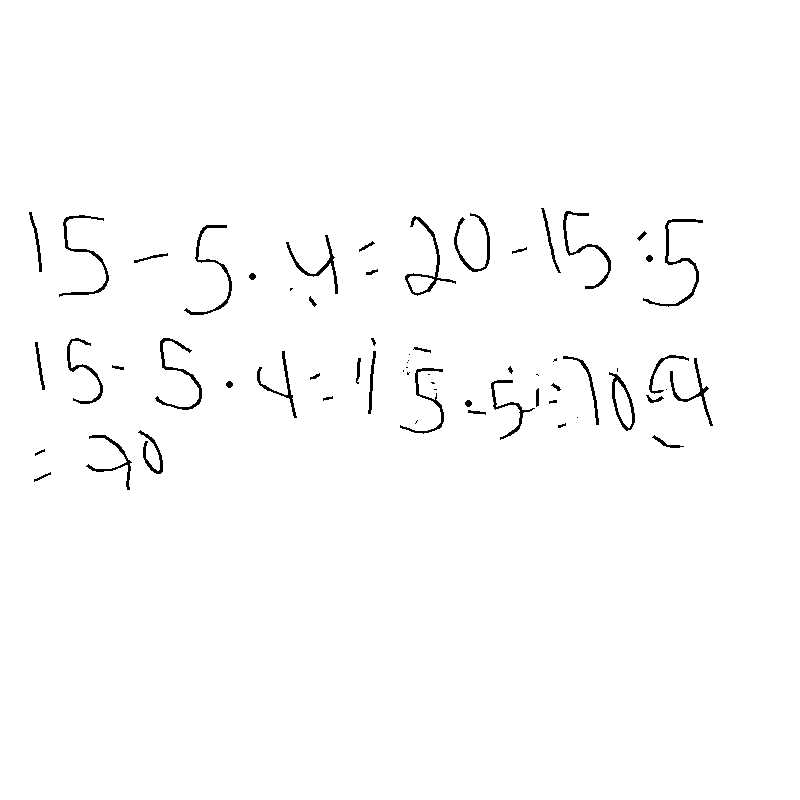 15 - 5 · 4 = 20 - 15 : 5
15 - 5 · 4 = 15 · 5 = 70 = 4
= 70